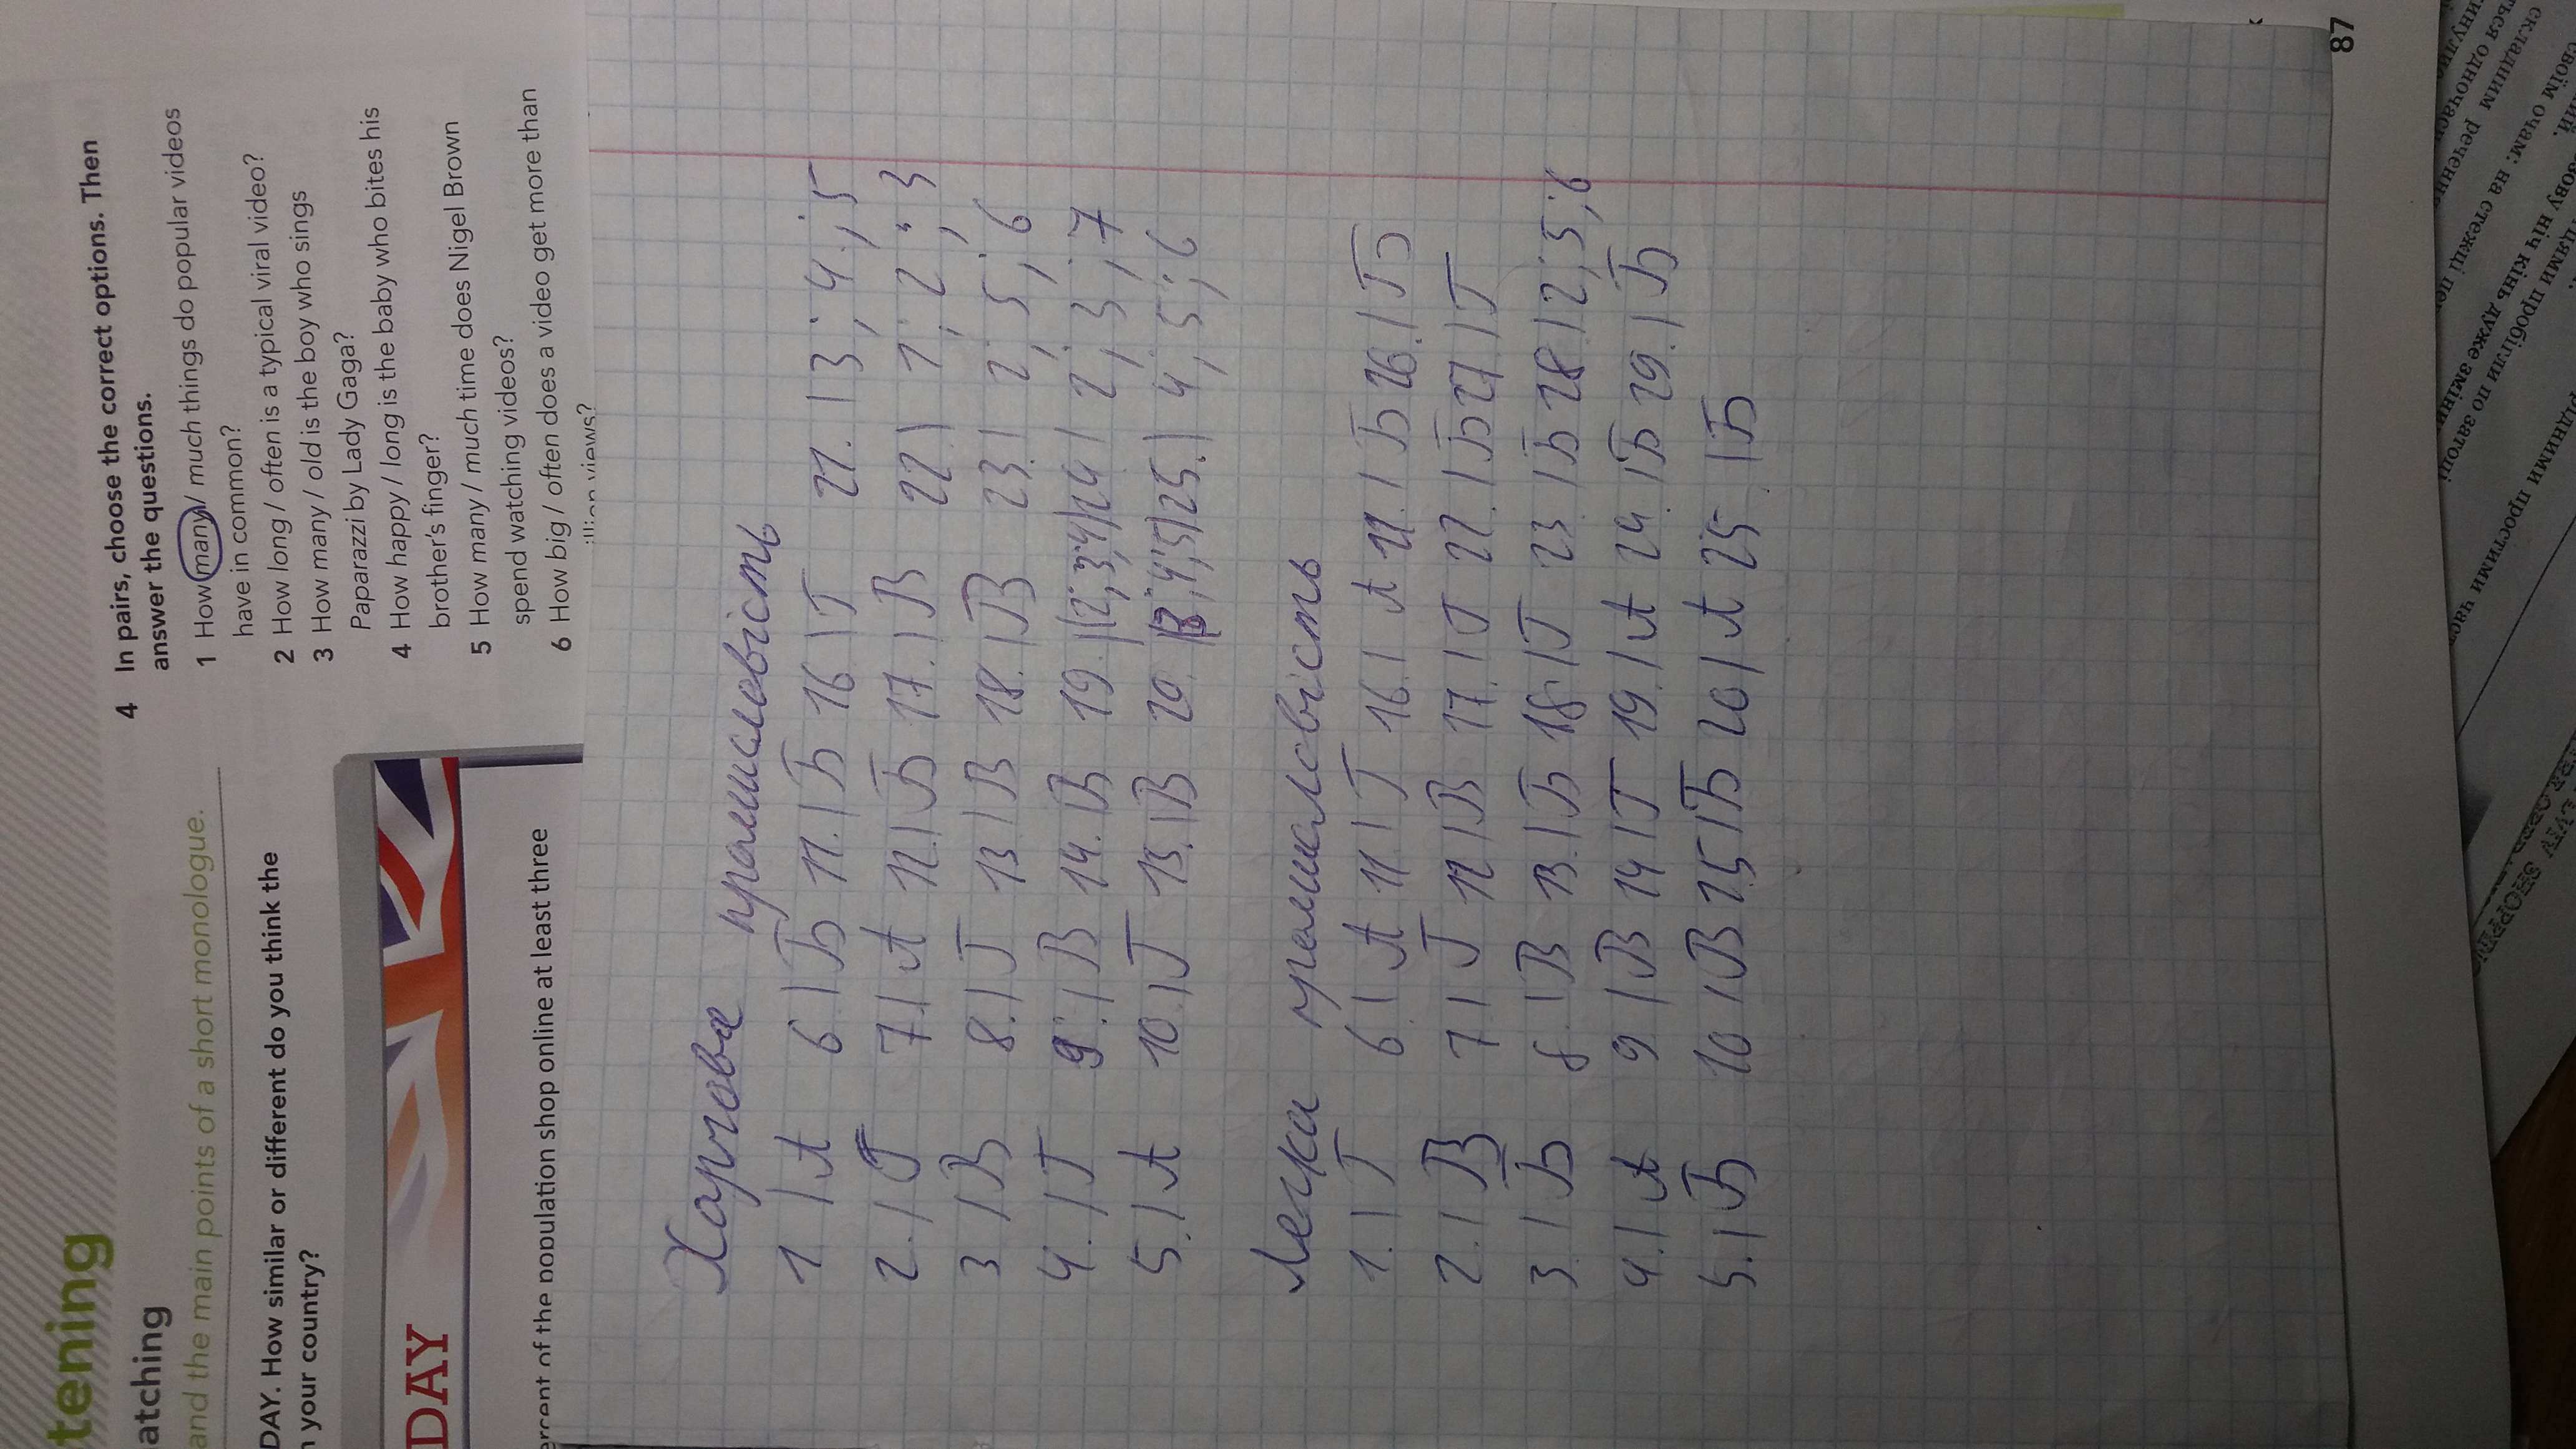 tening
atching
and the main points of a short monologue.
DAY. How similar or different do you think the
n your country?
DAY
ercent of the population shop online at least three
4 In pairs, choose the correct options. Then
answer the questions.
1 How many / much things do popular videos
have in common?
2 How long / often is a typical viral video?
3 How many / old is the boy who sings
Paparazzi by Lady Gaga?
4 How happy / long is the baby who bites his
brother's finger?
5 How many / much time does Nigel Brown
spend watching videos?
6 How big / often does a video get more than
illion views?
Харчова промисловість
1. | А 6. | Б 11. | Б 16. | Г 21. | 3 ; 4 ; 5
2. | Г 7. | А 12. | Б 17. | В 22 | 1 ; 2 ; 3
3 | В 8. | Г 13 | В 18. | В 23. | 2 ; 5 ; 6
4. | Г 9. | В 14. | В 19. | 2; 3; 4 | 24 | 2 ; 3 ; 7
5. | А 10. | Г 15. | В 20 | 3; 4; 5 | 25. | 4 ; 5 ; 6
Легка промисловість
1. | Г 6 | А 11 | Г 16. | А 21. | Б 26. | Б
2. | В 7 | Г 12 | В 17. | Г 22. | Б 27 | Г
3. | Б 8. | В 13. | Б 18 | Г 23 | Б 28 | 2; 5; 6
4. | А 9 | В 14 | Г 19. | А 24. | Б 29. | Б
5. | Б 10 | В 15 | Б 20 | А 25. | Б
87